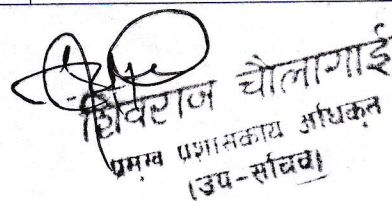 शिवराज चौलागाई
प्रमुख प्रशासकीय अधिकृत
(उप-सचिव)